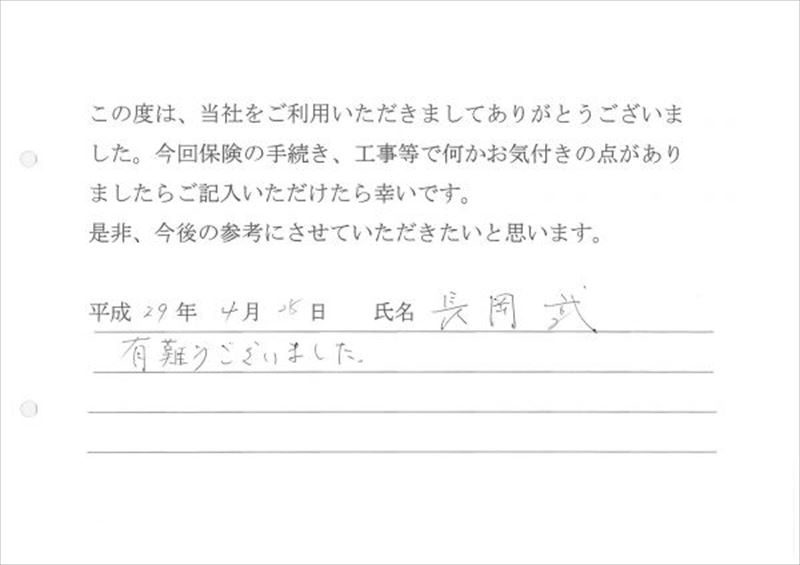 この度は、当社をご利用いただきましてありがとうございま
した。今回保険の手続き、工事等で何かお気付きの点があり
ましたらご記入いただけたら幸いです。
是非、今後の参考にさせていただきたいと思います。
平成 29 年 4 月 25 日 氏名 長岡 武
有難うございました。